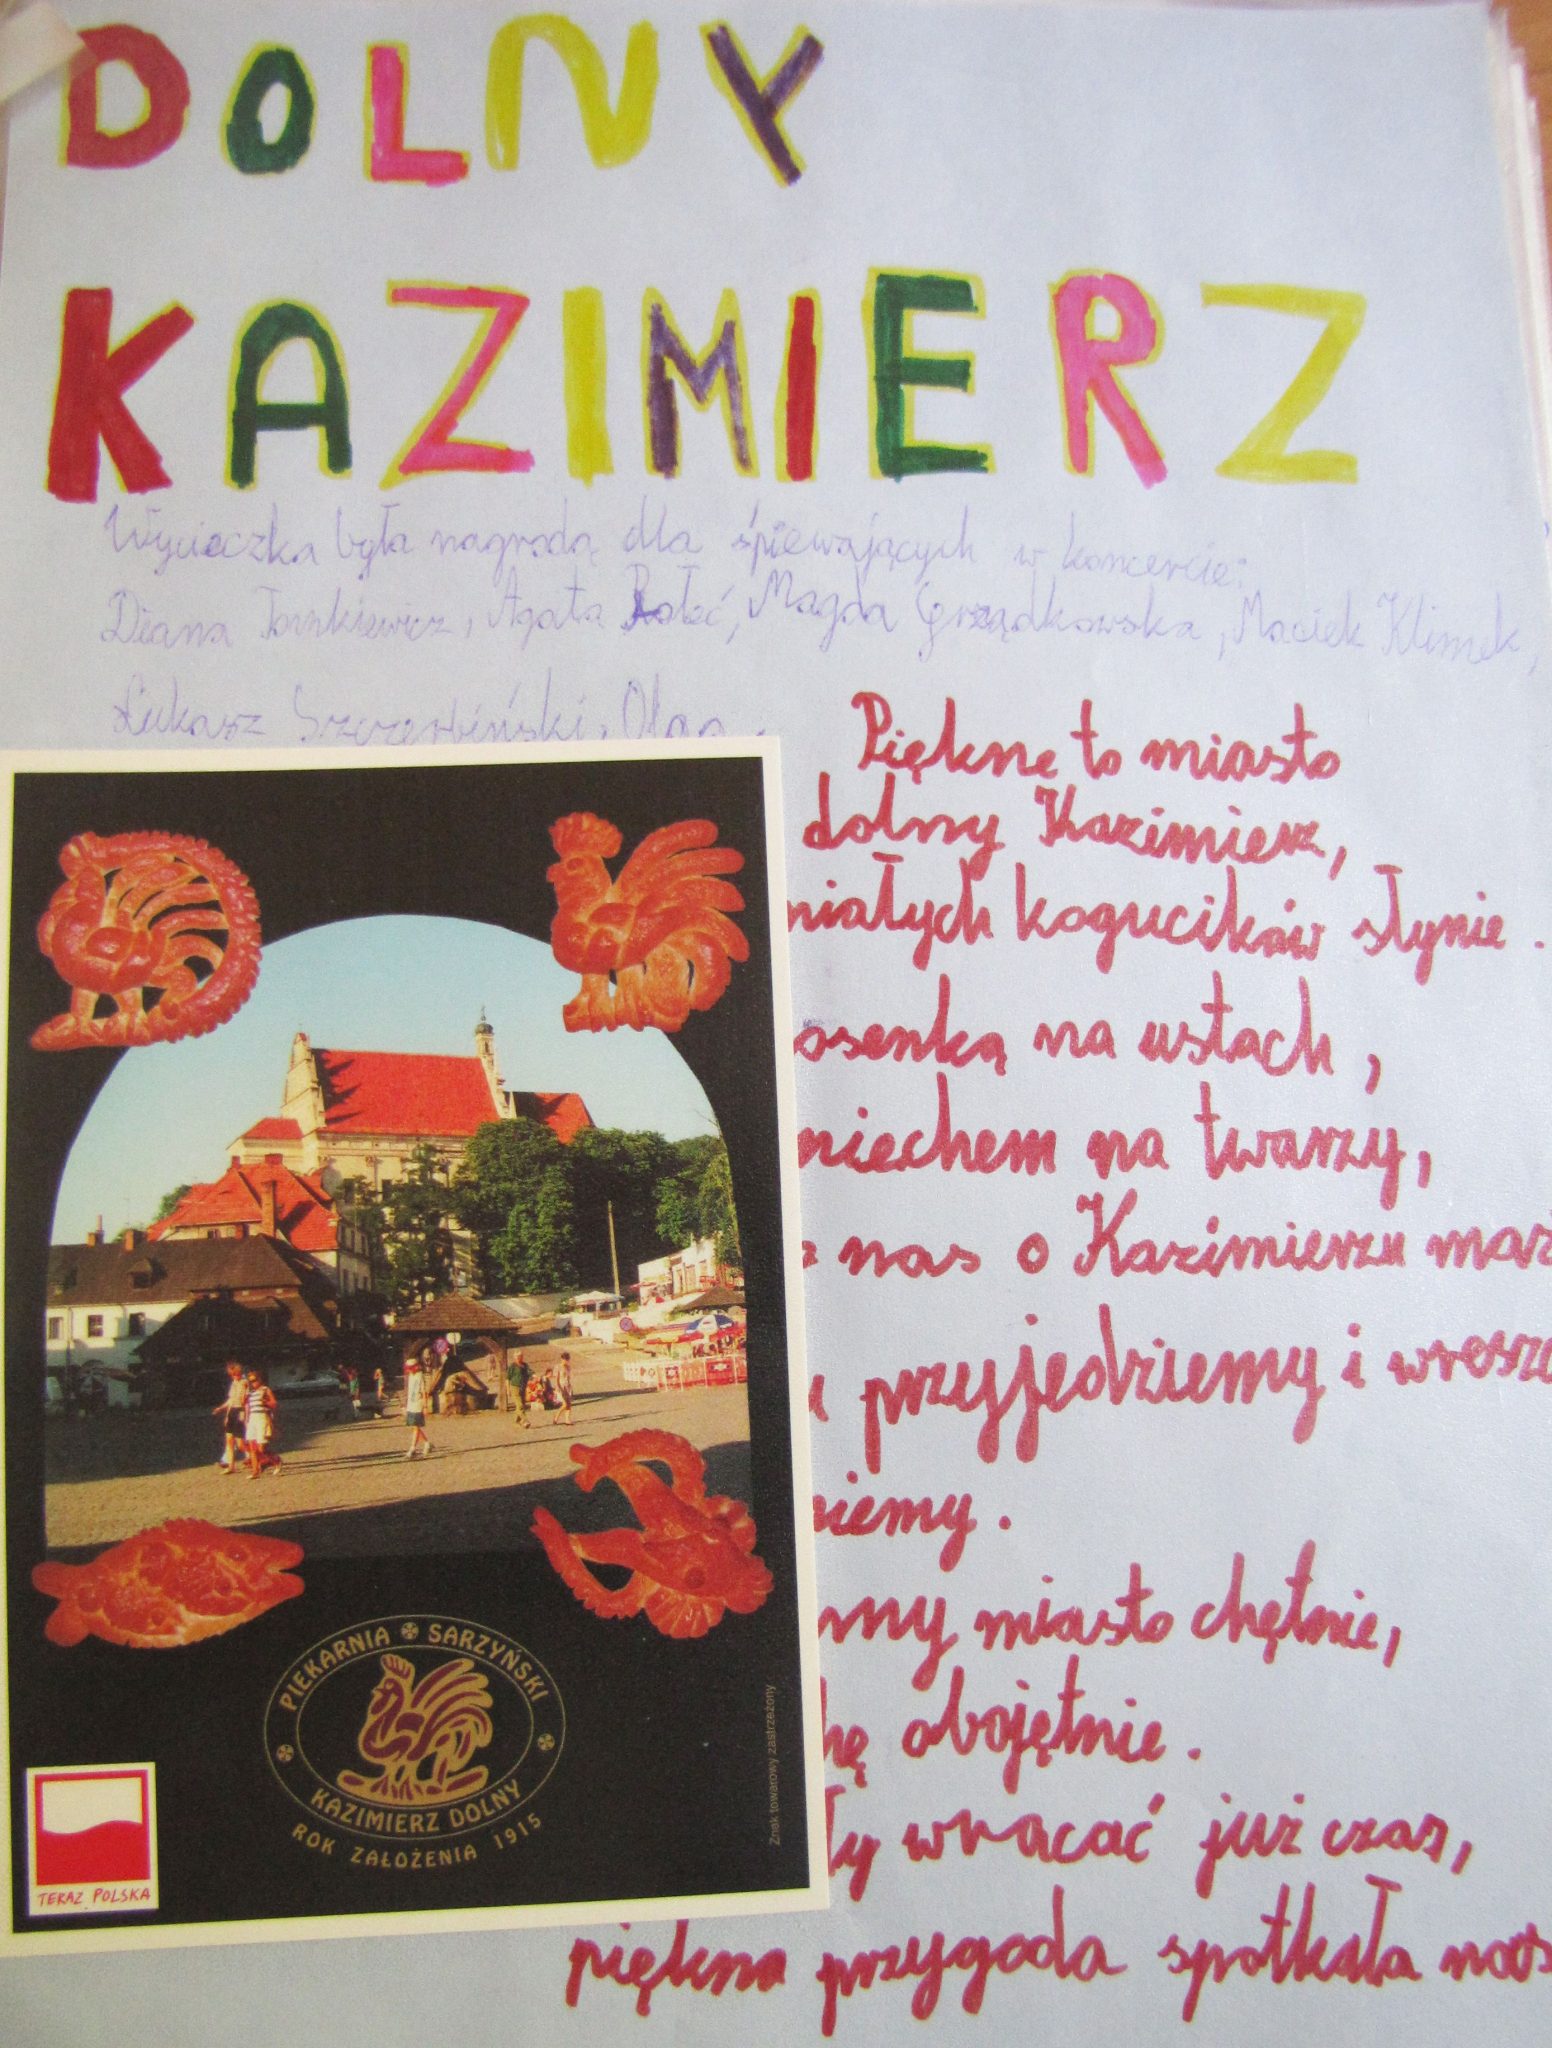 DOLNY
KAZIMIERZ
Wycieczka była nagrodą dla śpiewających w koncercie:
Diana Agata Magda Grządkowska, Maciek Klimek,
Łukasz Szczerbiński, Olga
Piękne to miasto
dolny Kazimierz,
małych kogucików słynie.
osenką na ustach,
miechem na twarzy,
z nas o Kazimierzu marz
u przyjedziemy i wreszc
niemy.
my miasto chętnie,
hę obojętnie.
ły wracać już czas,
piękna przygoda spotkała nas
PIEKARNIA SARZYŃSKI
KAZIMIERZ DOLNY
ROK ZAŁOŻENIA 1915
Znak towarowy zastrzeżony
TERAZ POLSKA